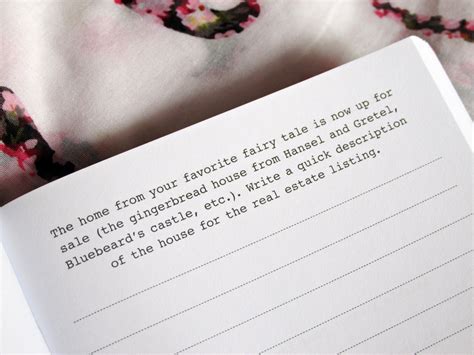 The home from your favorite fairy tale is now up for
sale (the gingerbread house from Hansel and Gretel,
Bluebeard's castle, etc.). Write a quick description
of the house for the real estate listing.